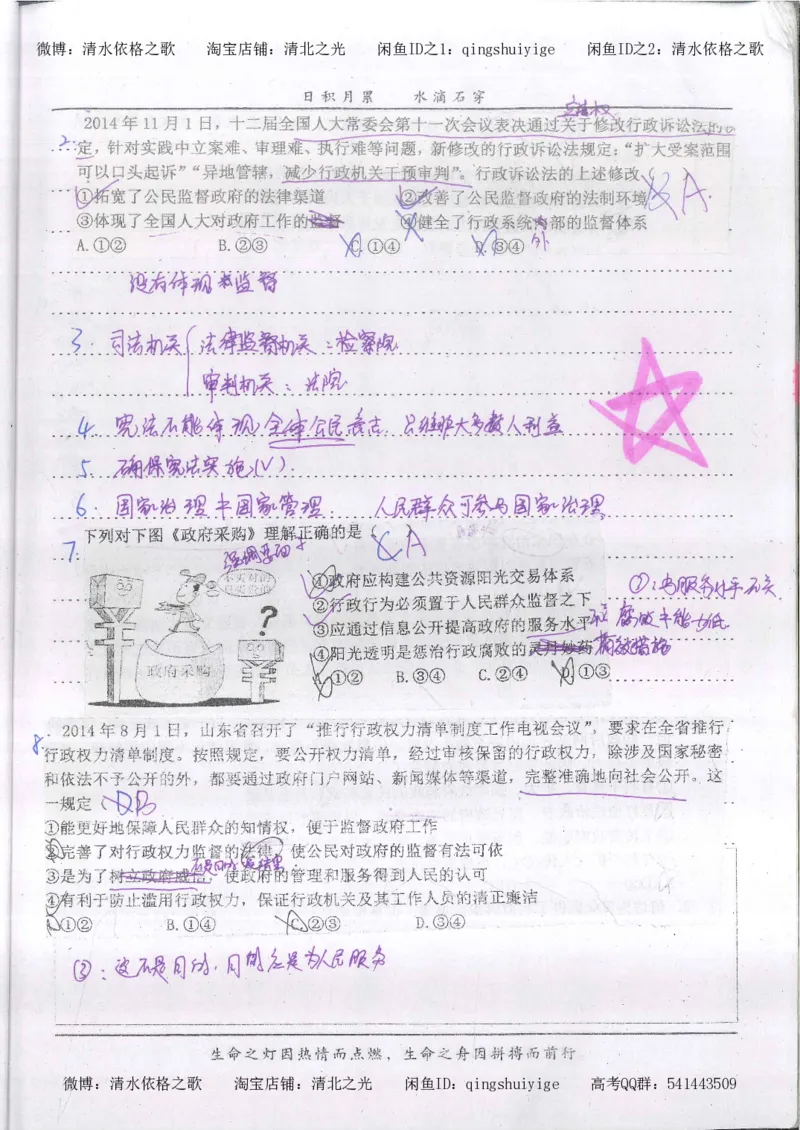 微博：清水依格之歌 淘宝店铺：清北之光 闲鱼ID之1：qingshuiyige 闲鱼ID之2：清水依格之歌
日积月累 水滴石穿
立法权
2. 2014年11月1日，十二届全国人大常委会第十一次会议表决通过关于修改行政诉讼法的决
定，针对实践中立案难、审理难、执行难等问题，新修改的行政诉讼法规定：“扩大受案范围
可以口头起诉”“异地管辖，减少行政机关干预审判”。行政诉讼法的上述修改（ ） A
①拓宽了公民监督政府的法律渠道 ②改善了公民监督政府的法制环境
③体现了全国人大对政府工作的监督 ④健全了行政系统内部的监督体系
外
A.①② B.②③ C.①④ D.③④
没有体现监督
3. 司法机关 法律监督机关：检察院
审判机关：法院
4 宪法不能体现全体公民意志 只维护大多数人利益
5. 确保宪法实施(√).
6. 国家治理≠国家管理 人民群众可参与国家治理
7. 下列对下图《政府采购》理解正确的是（ ） A
不买对的
只买贵的
政府采购
①政府应构建公共资源阳光交易体系
②行政行为必须置于人民群众监督之下
③应通过信息公开提高政府的服务水平
④阳光透明是惩治行政腐败的灵丹妙药 有效措施
A.①② B.③④ C.②④ D.①③
③：与服务水平无关
8. 2014年8月1日，山东省召开了“推行行政权力清单制度工作电视会议”，要求在全省推行
行政权力清单制度。按照规定，要公开权力清单，经过审核保留的行政权力，除涉及国家秘密
和依法不予公开的外，都要通过政府门户网站、新闻媒体等渠道，完整准确地向社会公开。这
一规定（ ） B
①能更好地保障人民群众的知情权，便于监督政府工作
②完善了对行政权力监督的法律，使公民对政府的监督有法可依
③是为了树立政府威信，使政府的管理和服务得到人民的认可
④有利于防止滥用行政权力，保证行政机关及其工作人员的清正廉洁
A.①② B.①④ C.②③ D.③④
③：这不是目的，目的应是为人民服务
生命之灯因热情而点燃，生命之舟因拼搏而前行
微博：清水依格之歌 淘宝店铺：清北之光 闲鱼ID：qingshuiyige 高考QQ群：541443509